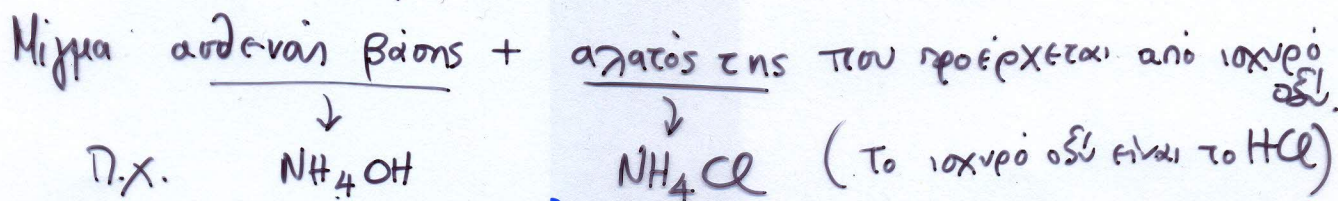 Μίγμα ασθενούς βάσης + αλατός της που προέρχεται από ισχυρό οξύ.
↓ ↓
Π.χ. NH₄OH NH₄Cl (το ισχυρό οξύ είναι το HCl)